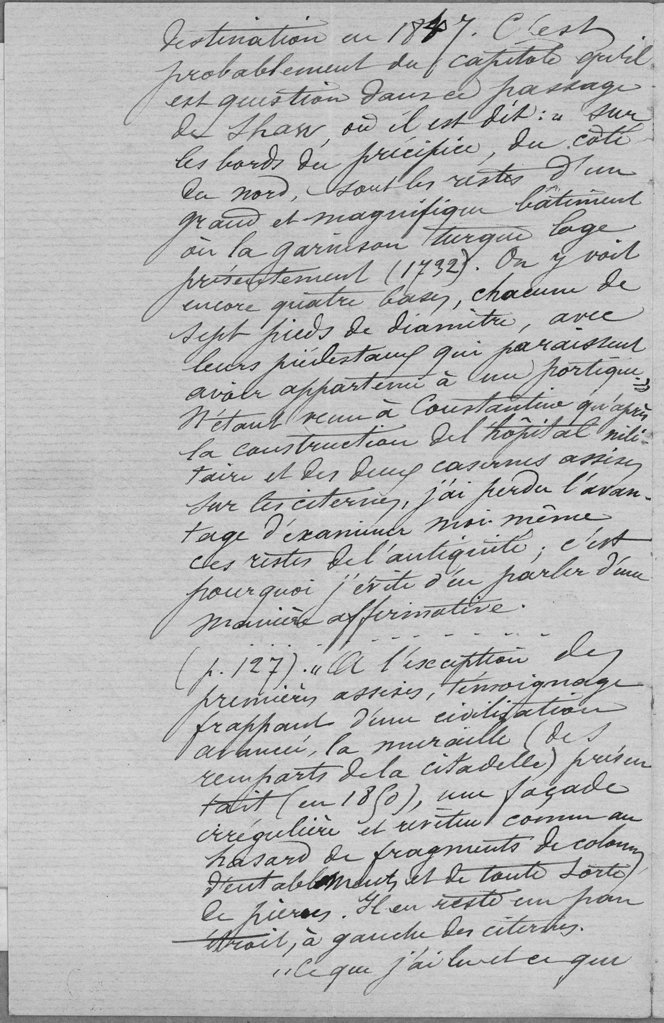 destination en 1847. C'est
probablement du capitole qu'il
est question dans ce passage
de Shaw, où il est dit : « sur
les bords du précipice, du côté
du nord, sont les restes d'un
grand et magnifique bâtiment
où la garnison turque loge
présentement (1732). On y voit
encore quatre bases, chacune de
sept pieds de diamètre, avec
leurs piédestaux qui paraissent
avoir appartenu à un portique »
N'étant venu à Constantine qu'après
la construction de l'hôpital mili-
taire et des deux casernes assises
sur les citernes, j'ai perdu l'avan-
tage d'examiner moi-même
ces restes de l'antiquité ; c'est
pourquoi j'évite d'en parler d'une
manière affirmative.
(p. 127). « A l'exception des
premières assises, témoignage
frappant d'une civilisation
avancée, la muraille (des
remparts de la citadelle) présen
tait (en 1850), une façade
irrégulière et revêtue comme au
hasard de fragments de colonnes
d'entablements et de toute sorte
de pierres. Il en reste un pan
étroit, à gauche des citernes.
« Ce que j'ai lu et ce que